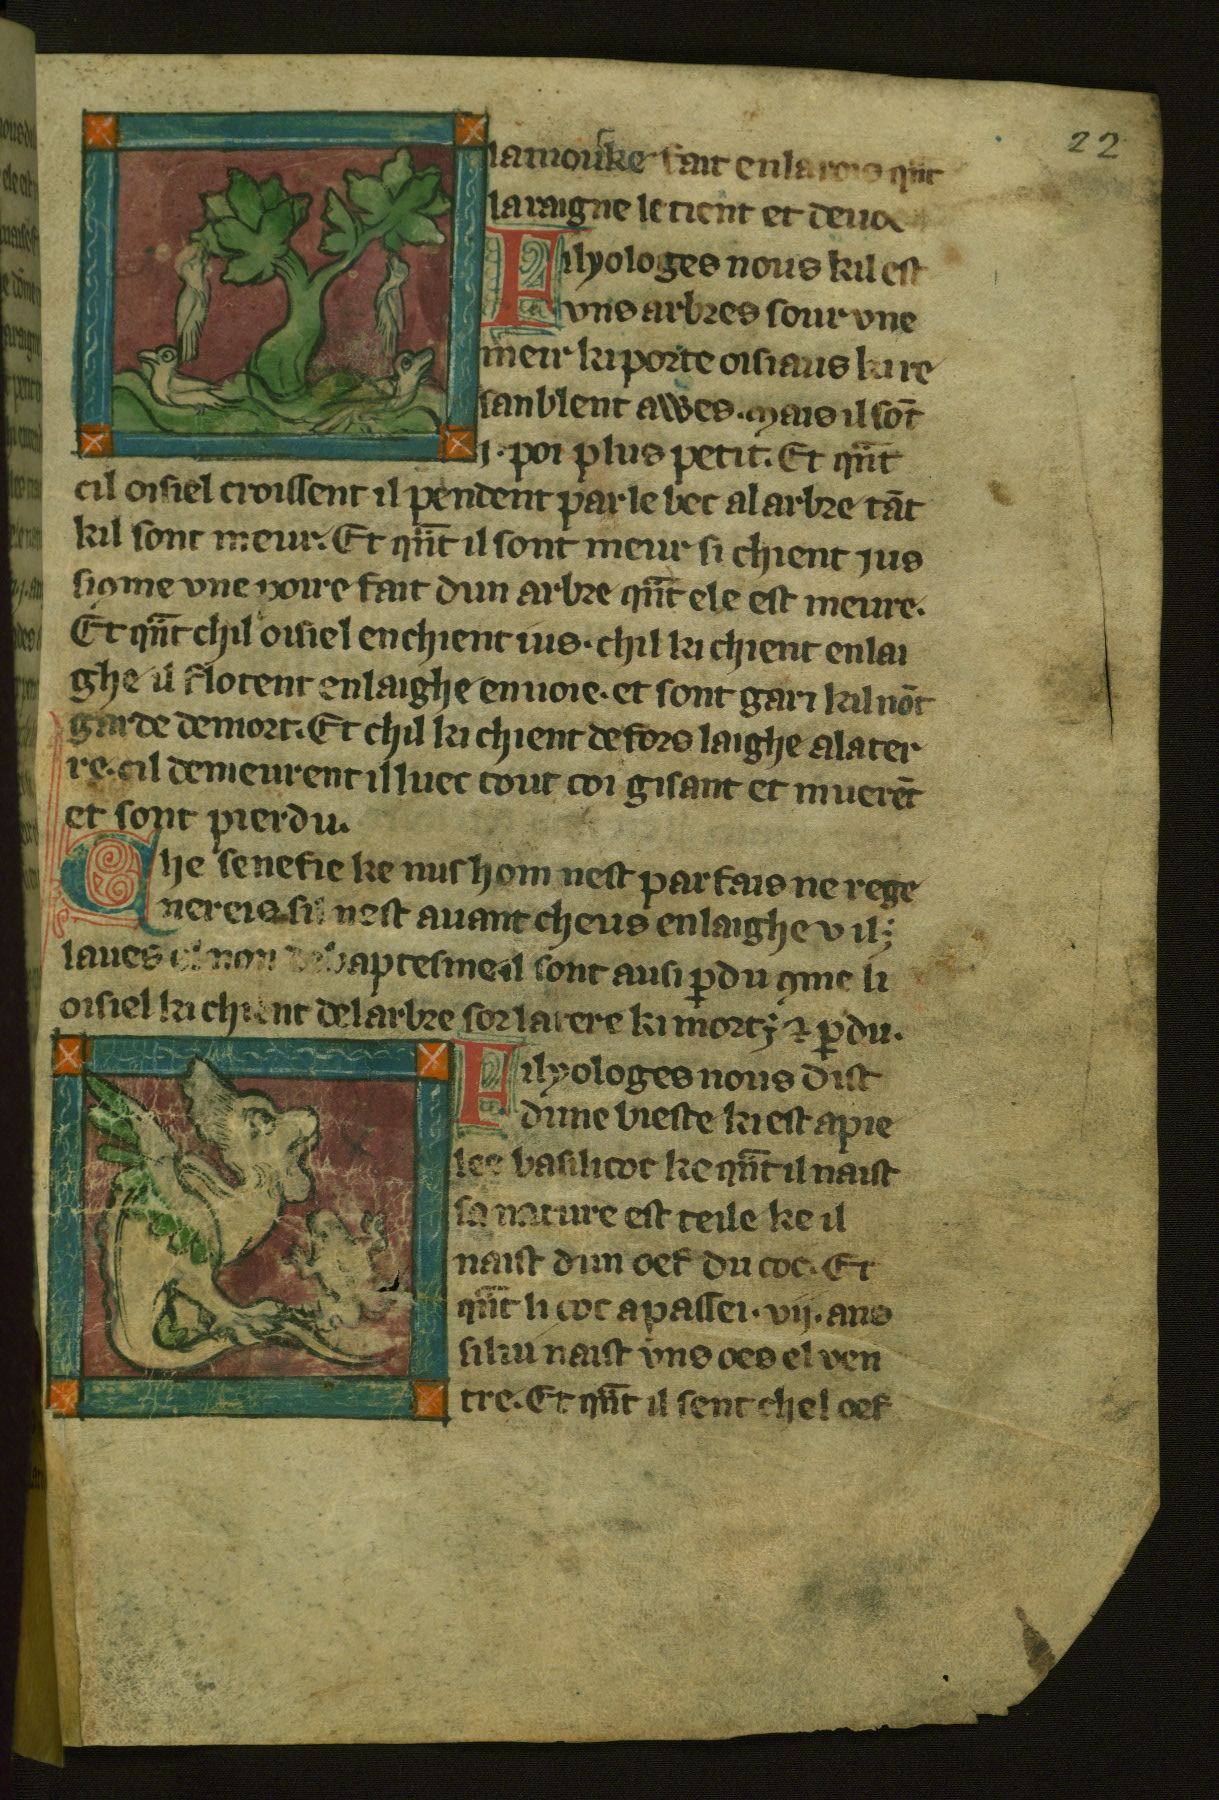 22
la mouske fait en la rois qñt
laraigne le tient et deuo
Filyologes nous kil est
vns arbres sour vne
meir ki porte oisiaus ki re
sanblent awes. mais il sōt
i. poi plus petit. Et qñt
cil oisiel croissent il pendent par le bec al arbre tāt
kil sont meur. Et qñt il sont meur si chient jus
si ꝯme vne poire fait dun arbre qñt ele est meure.
Et qñt chil oisiel en chient ius. chil ki chient en lai
ghe il flotent en laighe en uoie. et sont gari kil nōt
garde de mort. Et chil ki chient defors laighe a la ter
re. cil demeurent illuec tout coi gisant et muerēt
et sont pierdu.
Che senefie ke nus hom nest parfais ne rege
nereis sil nest auant cheus en laighe v il
laues el non de baptesme il sont ausi ꝑdu ꝯme li
oisiel ki chient del arbre sor la tere ki mort ⁊ ꝑdu.
Filyologes nous dist
dune bieste ki est apie
lee basilicoc ke qñt il naist
sa nature est teile ke il
naist dun oef du coc. Et
qñt li coc a passei. vij. ans
si liu naist vns oes el ven
tre. Et qñt il sent chel oef